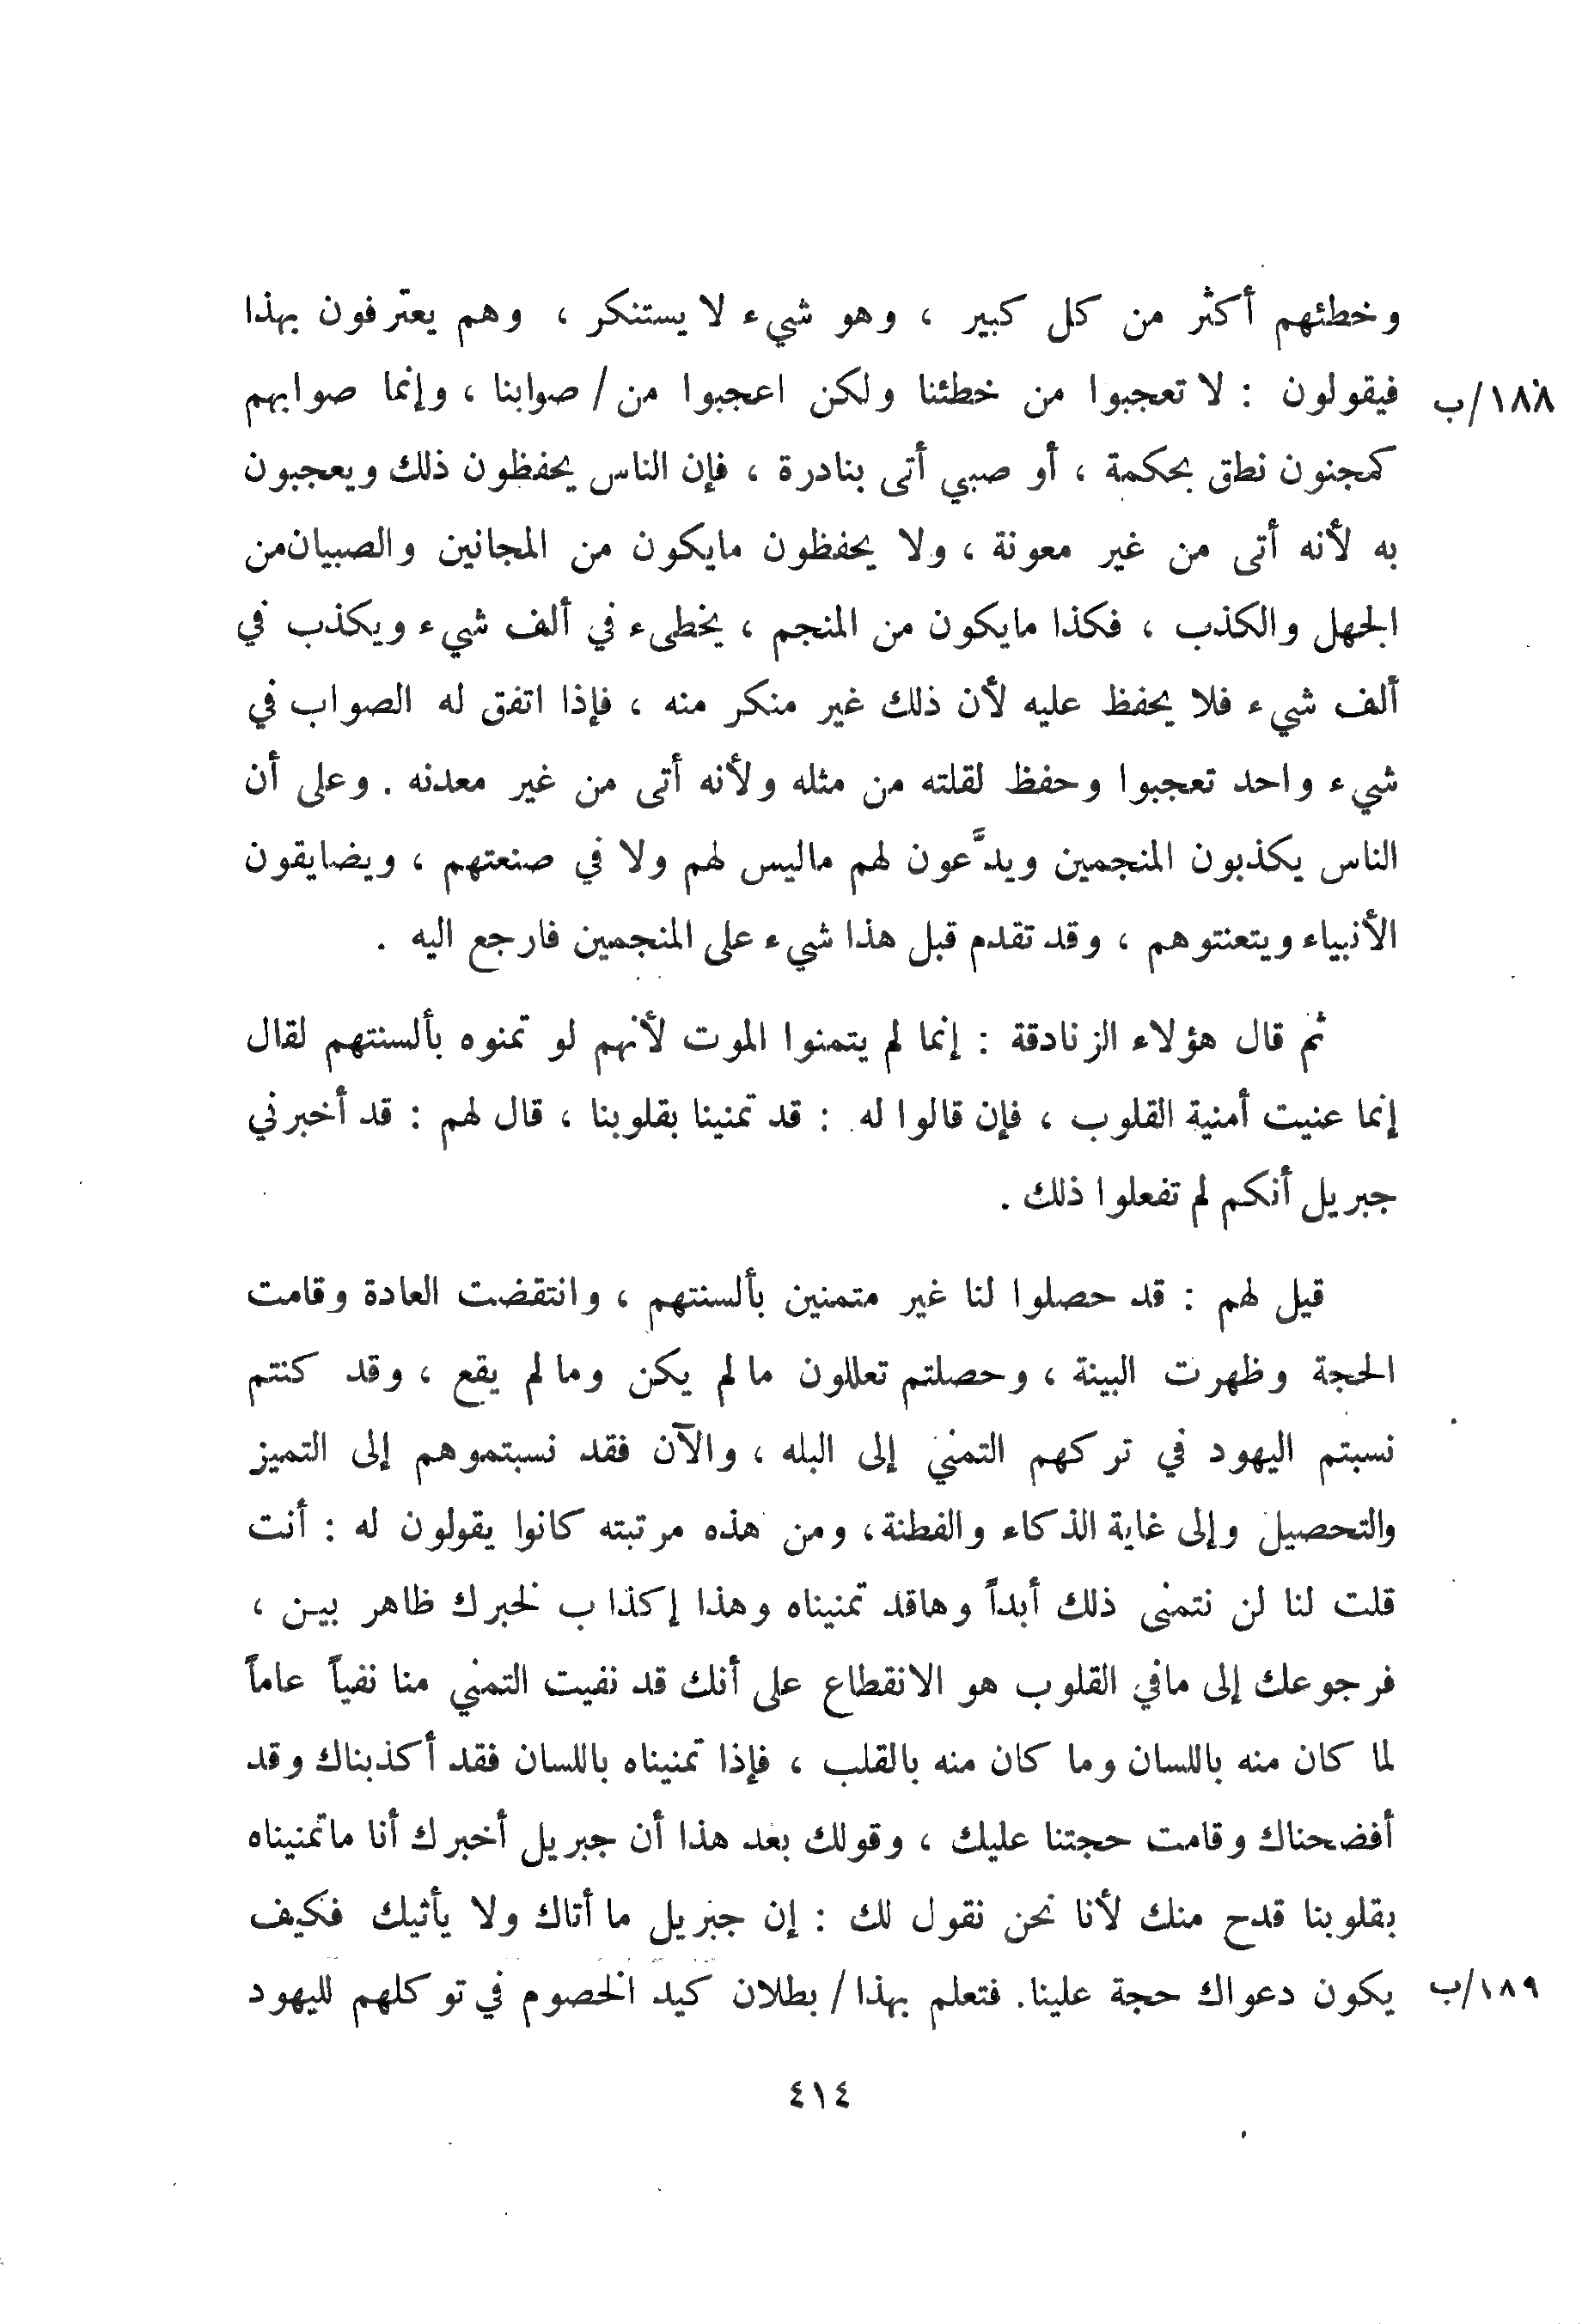 وخطئهم أكثر من كل كبير ، وهو شيء لا يستنكر ، وهم يعترفون بهذا
فيقولون : لا تعجبوا من خطئنا ولكن اعجبوا من / صوابنا ، وإنما صوابهم
١٨٨/ب
كمجنون نطق بحكمة ، أو صبي أتى بنادرة ، فإن الناس يحفظون ذلك ويعجبون
به لأنه أتى من غير معونة ، ولا يحفظون مايكون من المجانين والصبيان من
الجهل والكذب ، فكذا مايكون من المنجم ، يخطىء في ألف شيء ويكذب في
ألف شيء فلا يحفظ عليه لأن ذلك غير منكر منه ، فإذا اتفق له الصواب في
شيء واحد تعجبوا وحفظ لقلته من مثله ولأنه أتى من غير معدنه . وعلى أن
الناس يكذبون المنجمين ويدَّعون لهم ماليس لهم ولا في صنعتهم ، ويضايقون
الأنبياء ويتعنتوهم ، وقد تقدم قبل هذا شيء على المنجمين فارجع اليه .
ثم قال هؤلاء الزنادقة : إنما لم يتمنوا الموت لأنهم لو تمنوه بألسنتهم لقال
إنما عنيت أمنية القلوب ، فإن قالوا له : قد تمنينا بقلوبنا ، قال لهم : قد أخبرني
جبريل أنكم لم تفعلوا ذلك .
قيل لهم : قد حصلوا لنا غير متمنين بألسنتهم ، وانتقضت العادة وقامت
الحجة وظهرت البينة ، وحصلتم تعللون مالم يكن ومالم يقع ، وقد كنتم
نسبتم اليهود في تركهم التمني إلى البله ، والآن فقد نسبتموهم إلى التميز
والتحصيل وإلى غاية الذكاء والفطنة ، ومن هذه مرتبته كانوا يقولون له : أنت
قلت لنا لن نتمنى ذلك أبداً وهاقد تمنيناه وهذا إكذاب لخبرك ظاهر بيـن ،
فرجوعك إلى مافي القلوب هو الانقطاع على أنك قد نفيت التمني منا نفياً عاماً
لما كان منه باللسان وما كان منه بالقلب ، فإذا تمنيناه باللسان فقد أكذبناك وقد
أفضحناك وقامت حجتنا عليك ، وقولك بعد هذا أن جبريل أخبرك أنا ماتمنيناه
بقلوبنا قدح منك لأنا نحن نقول لك : إن جبريل ما أتاك ولا يأتيك فكيف
يكون دعواك حجة علينا. فتعلم بهذا / بطلان كيد الخصوم في توكلهم لليهود
١٨٩/ب
٤١٤